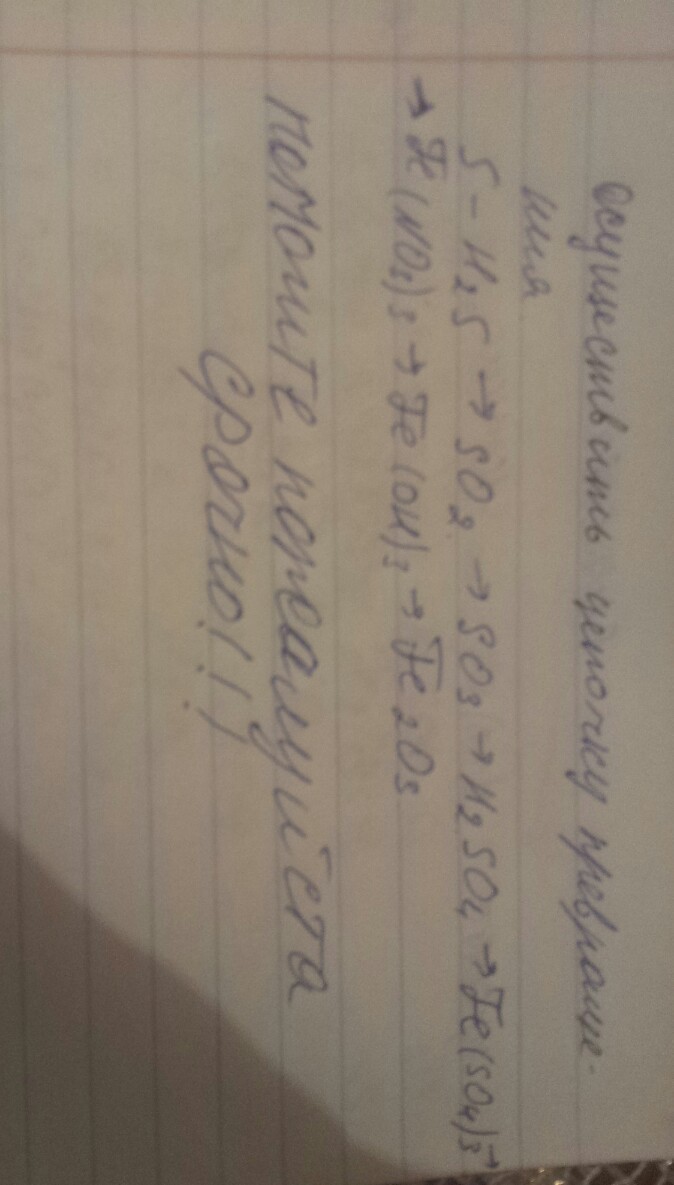 Осуществить цепочку превраще-
ния
S - H₂S → SO₂ → SO₃ → H₂SO₄ → Fe(SO₄)₃ →
→ Fe(NO₃)₃ → Fe(OH)₃ → Fe₂O₃
помогите пожалуйста
срочно!!!